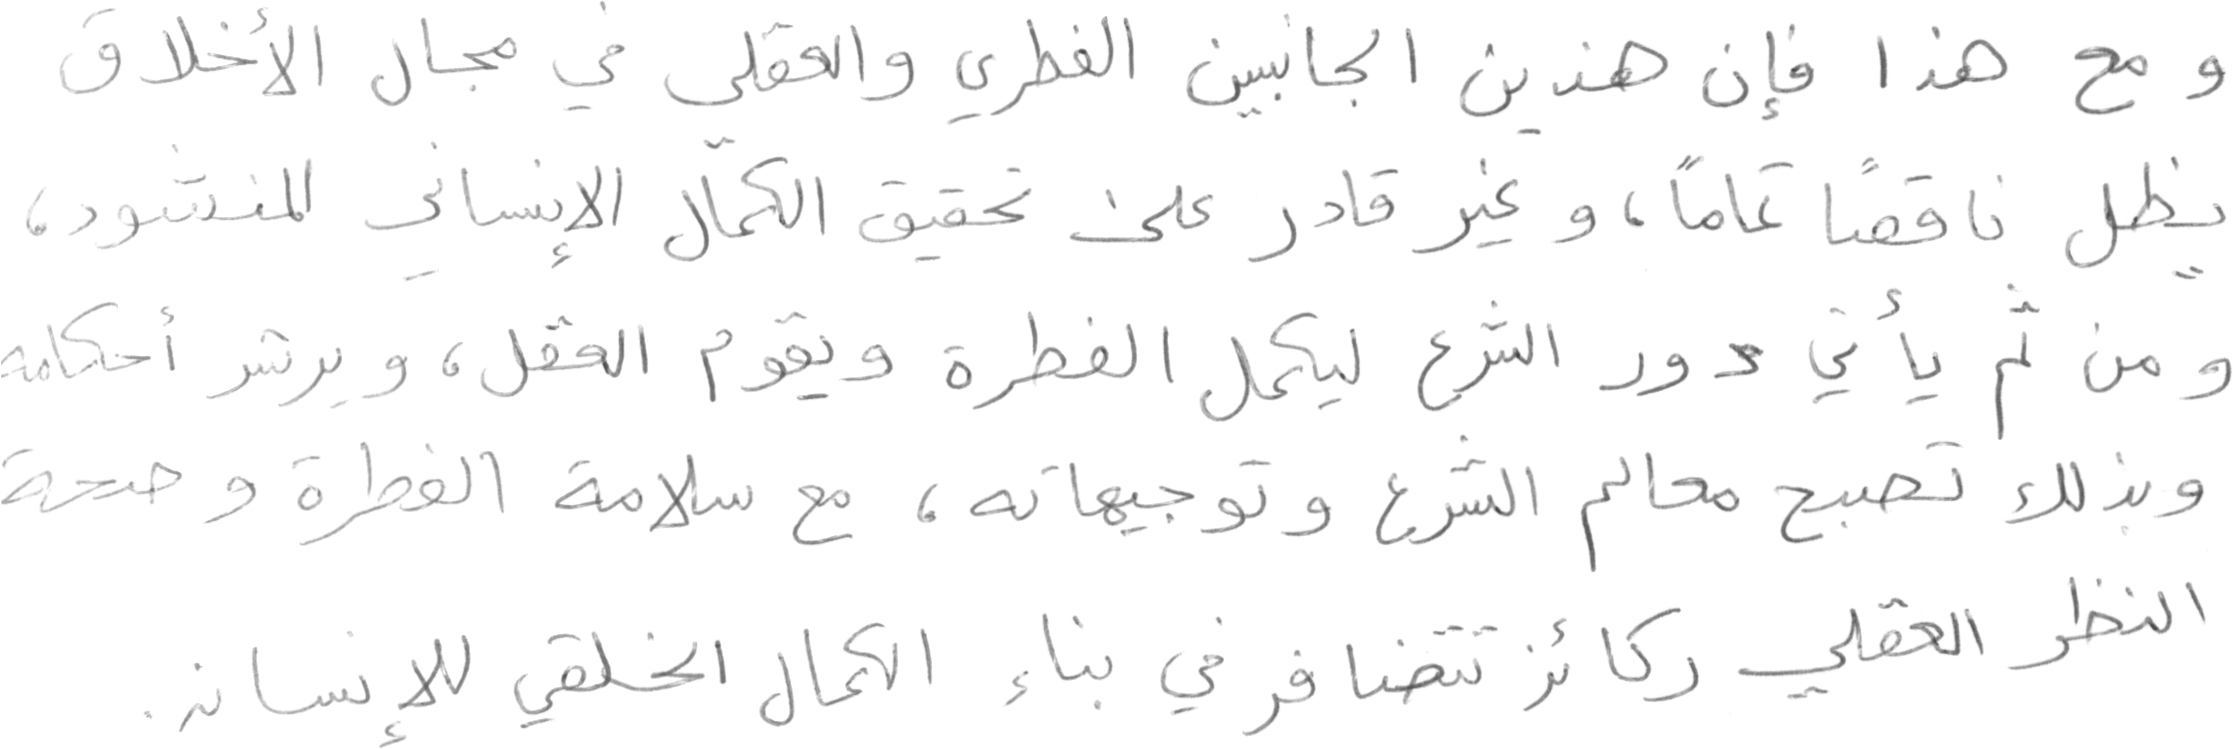 ومع هذا فإن هذين الجانبين الفطري والعقلي في مجال الأخلاق
يظل ناقصًا تمامًا، وغير قادر على تحقيق الكمال الإنساني المنشود،
ومن ثم يأتي دور الشرع ليكمل الفطرة ويقوم العقل، ويرشد أحكامه
وبذلك تصبح معالم الشرع وتوجيهاته، مع سلامة الفطرة وصحة
النظر العقلي ركائز تتضافر في بناء الكمال الخلقي للإنسان.